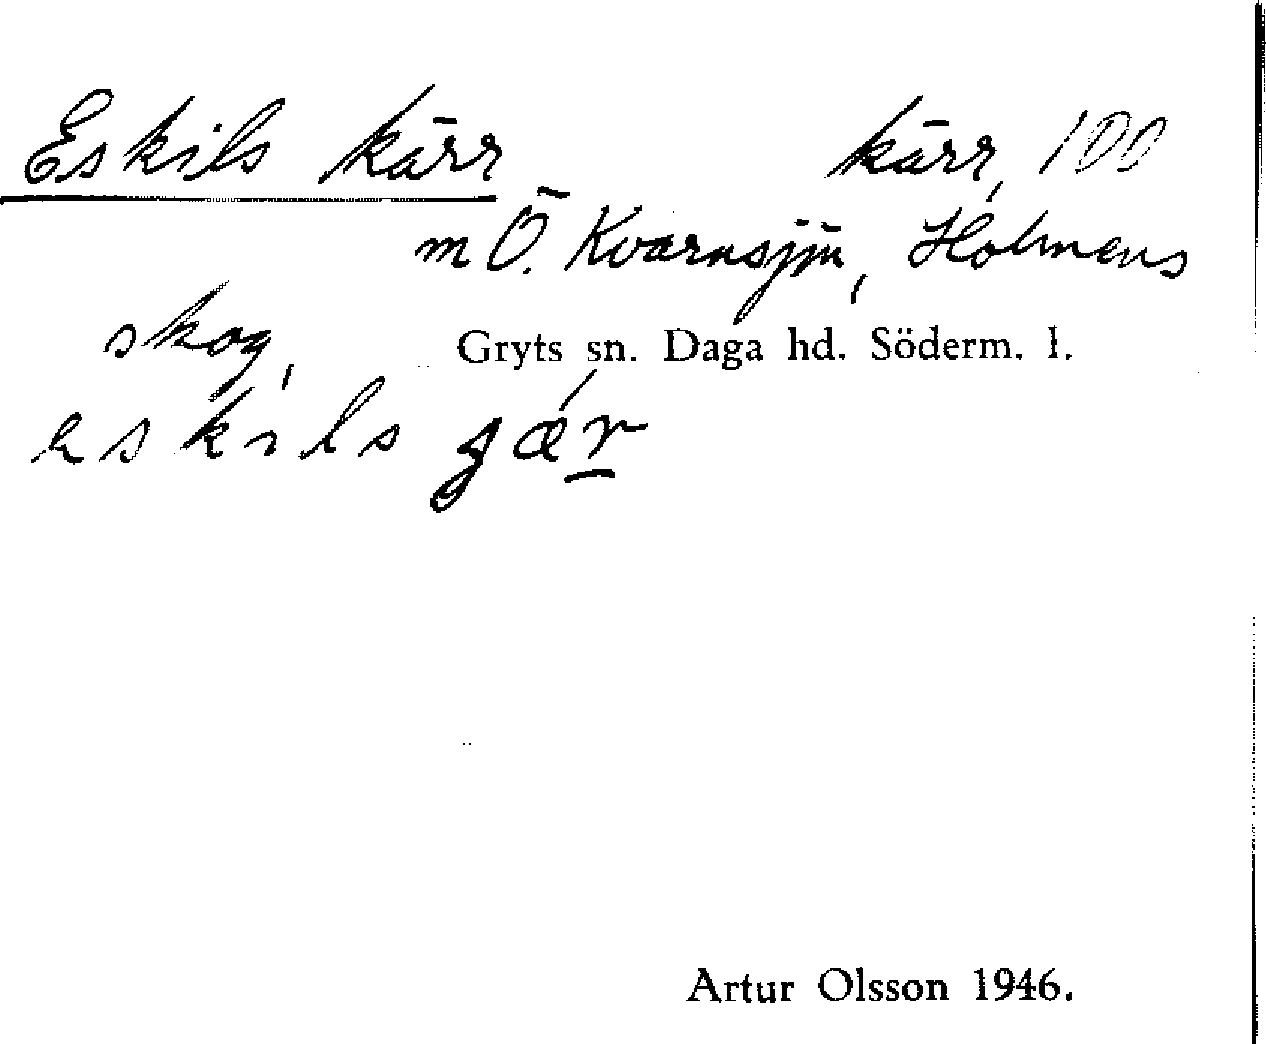 Eskils kärr kärr, 100
m Ö. Kvarnsjön, Holmens
skog,
Gryts sn. Daga hd. Söderm. l.
eskils gær
Artur Olsson 1946.